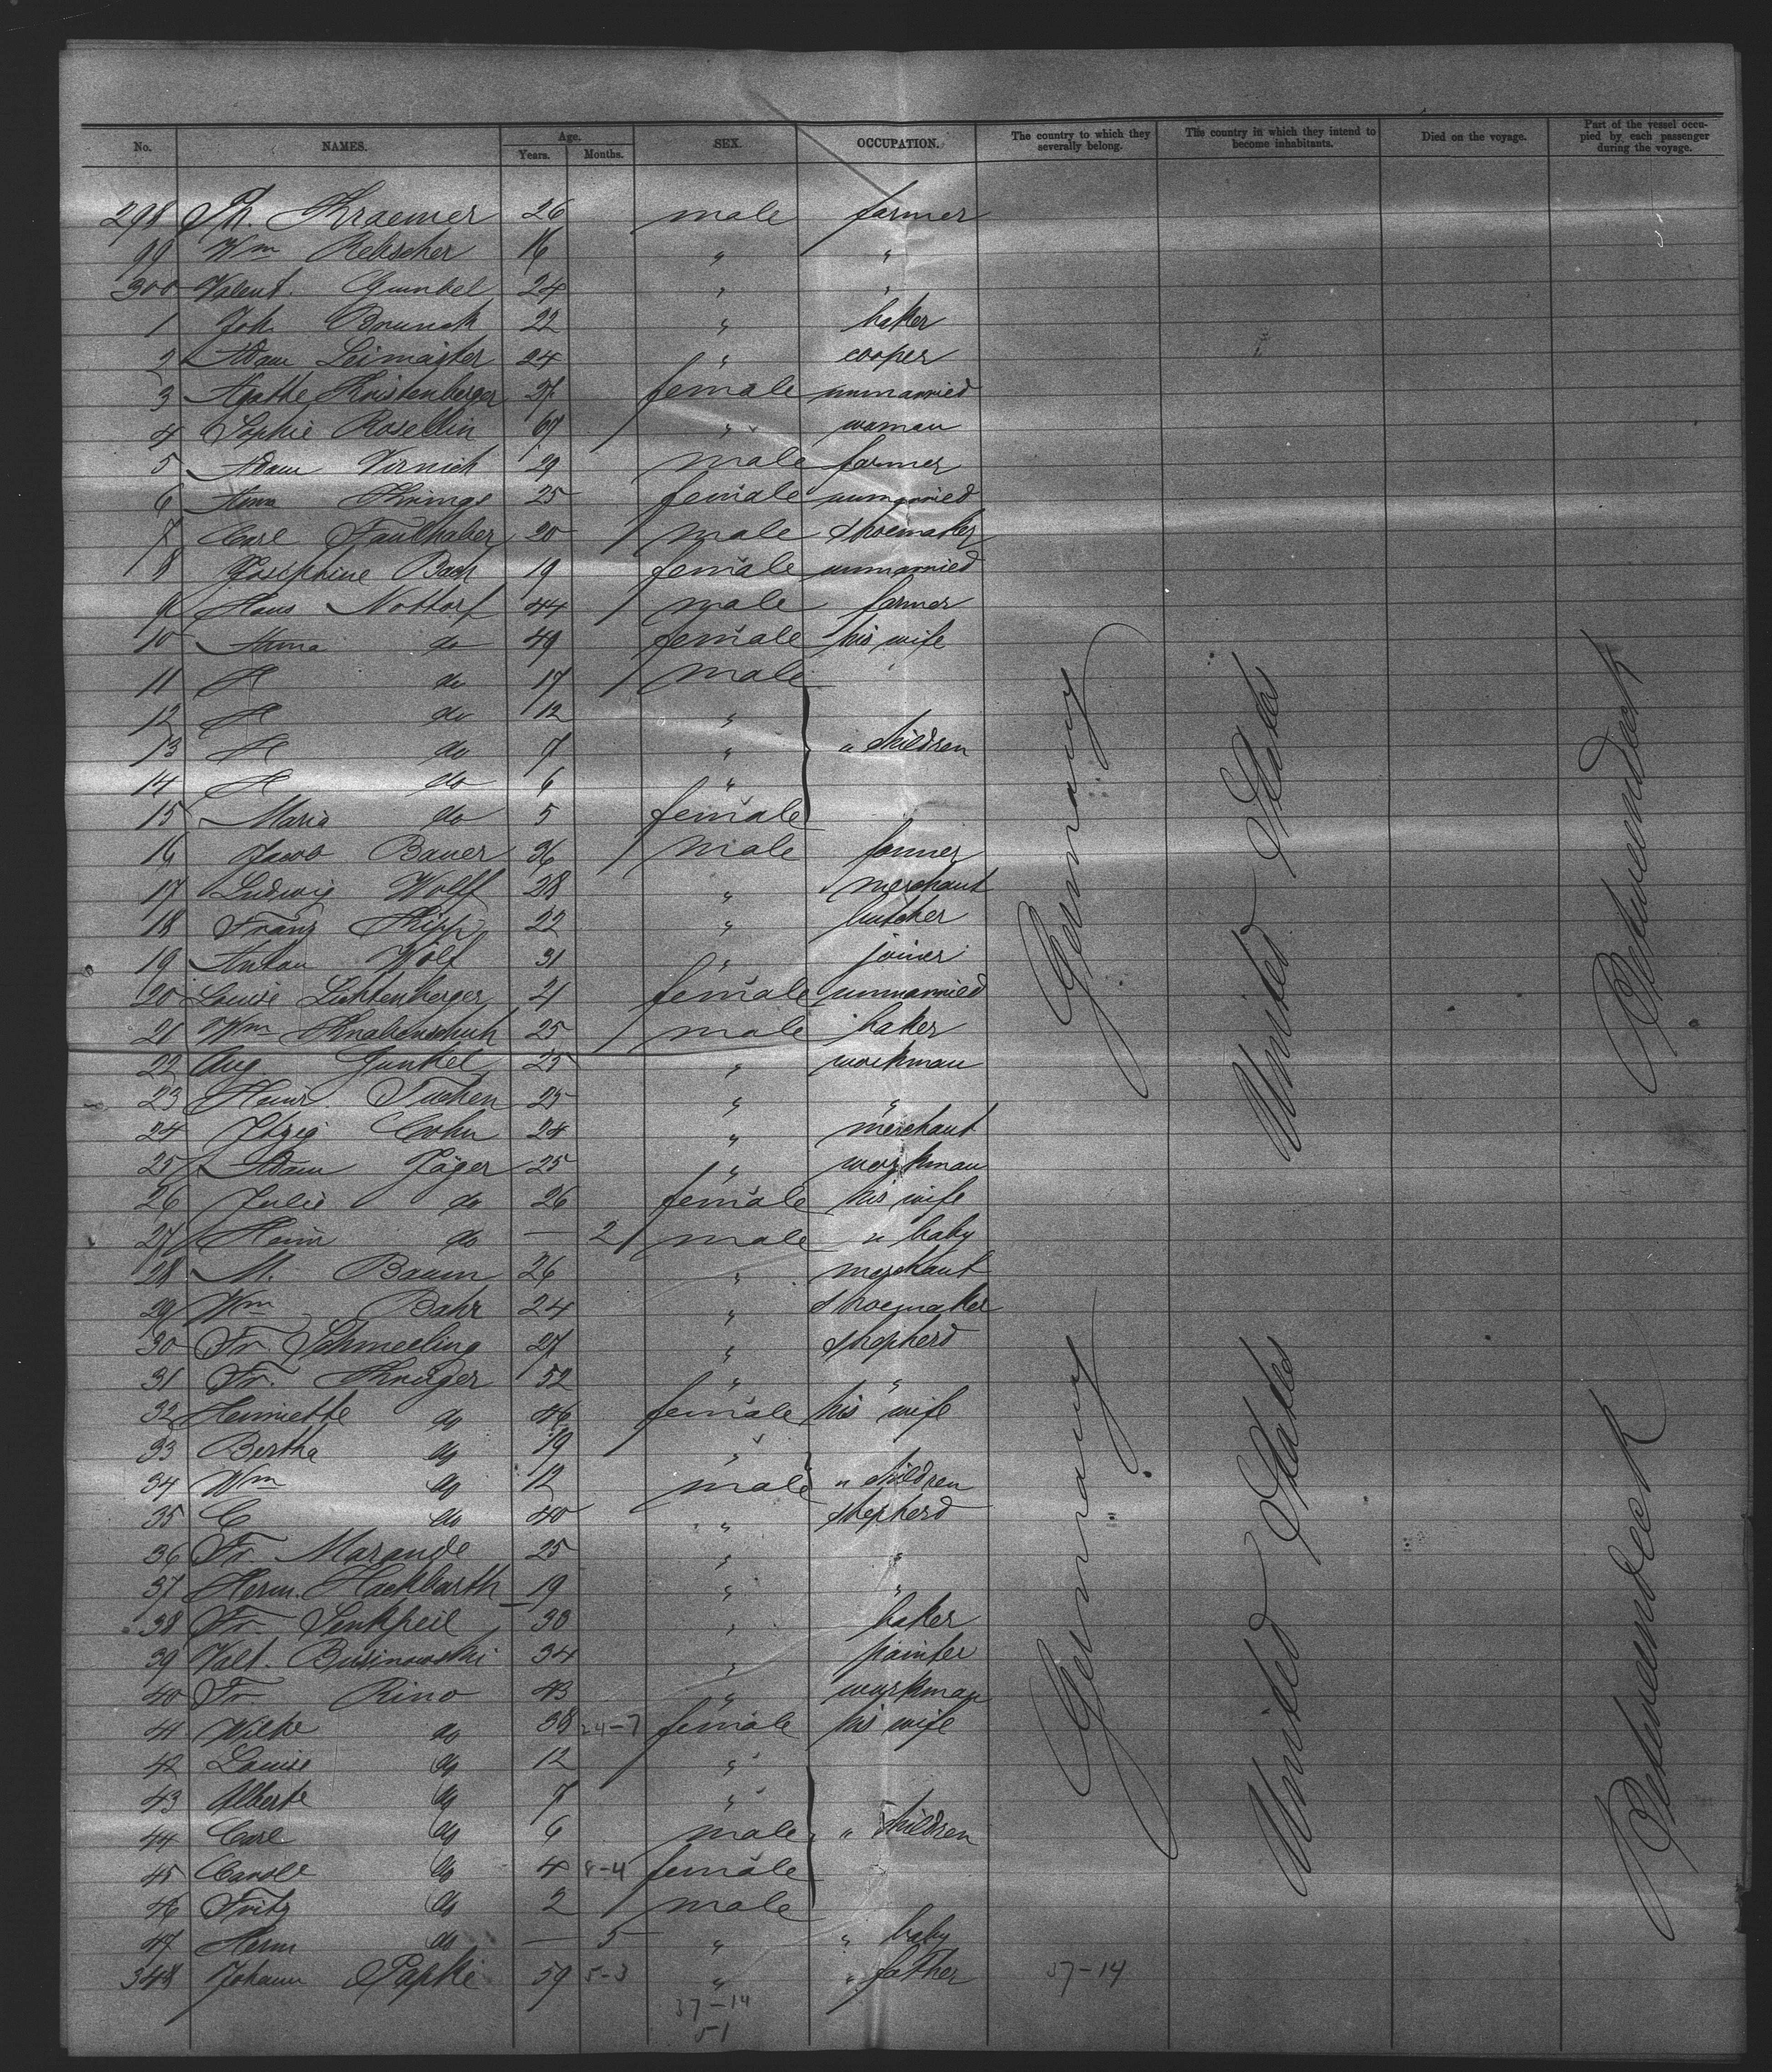 No. NAMES. Age. Years. Months. SEX. OCCUPATION. The country to which they severally belong. The country in which they intend to become inhabitants. Died on the voyage. Part of the vessel occupied by each passenger during the voyage.
298 Ph. Kraemer 26 male farmer
99 Wm Rebscher 16 " "
300 Valent. Gunkel 24 " "
1 Joh. Brunck 22 " baker
2 Adam Leimaister 24 " cooper
3 Agathe Kristenberger 27 female unmarried
4 Sophie Rosellin 67 " woman
5 Adam Virnich 29 male farmer
6 Anna Krings 25 female unmarried
7 Carl Faulhaber 20 male shoemaker
8 Josephine Bach 19 female unmarried
9 Hans Nottorf 44 male farmer
10 Anna do 49 female his wife
11 H do 17 male
12 H do 12 "
13 H do 7 " " children
14 H do 6 "
15 Maria do 5 female
16 Jacob Bauer 36 male farmer
17 Ludwig Wolff 28 " merchant
18 Franz Kipp 22 " butcher
19 Anton Wolf 31 " joiner
20 Louise Lichtenberger 21 female unmarried
21 Wm Knabenschuh 25 male baker
22 Aug. Gunkel 25 " workman
23 Heinr. Tucken 25 " "
24 Itzig Cohn 24 " merchant
25 Adam Jäger 25 " workman
26 Julie do 26 female his wife
27 Heinr do — 2 male " baby
28 M. Baum 26 " merchant
29 Wm Bahr 24 " shoemaker
30 Fr. Schmeeling 27 " shepherd
31 Fr. Krüger 52 " "
32 Henriette do 46 female his wife
33 Bertha do 19 "
34 Wm do 12 male " children
35 C do 40 " shepherd
36 Fr. Marande 25 " "
37 Herm. Hackbarth 19 " "
38 Fr. Senkpeil 30 " baker
39 Valt. Businowski 34 " painter
40 Fr. Rino 43 " workman
41 Wilhe do 38 24-7 female his wife
42 Louise do 12 "
43 Alberte do 7 "
44 Carl do 6 male " children
45 Carole do 4 8-4 female
46 Fritz do 2 male
47 Herm do — 5 " " baby
348 Johann Papke 59 5-3 " " father 37-14
37-14
5-1
Germany
United States
Betweendeck
Germany
United States
Betweendeck